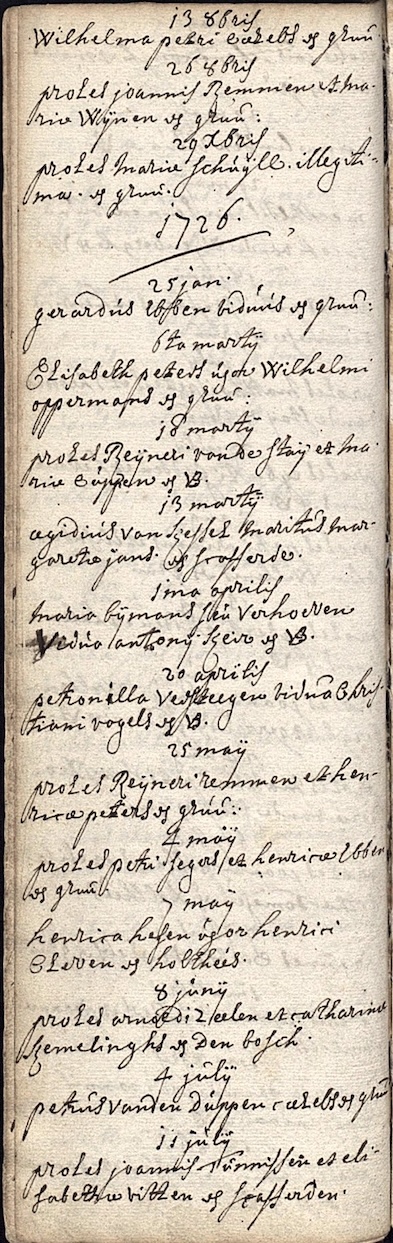 13 8bris
Wilhelma petri cælebs ex gruu:
26 8bris
proles joannis Remmen et ma-
riæ Wijnen ex gruu:
29 Xbris
proles Mariæ Schuijll. illegiti-
ma. ex gruu.
1726.
25 jan.
gerardus Ebben viduus ex gruu:
6ta martij
Elisabeth peters uxor Wilhelmi
oppermans ex gruu:
18 martij
proles Reijneri vande Staij et Ma-
riæ Cuppen ex B.
13 martij
ægidius van Hessel Maritus Mar-
garetæ jans. ex scafferde.
1ma aprilis
Maria bijmans seu Verhoeven
Vidua antonij ex B.
20 aprilis
petronilla Versteegen vidua Chris-
tiani vogels ex B.
25 maij
proles Reijneri remmen et hen-
ricæ peters ex gruu:
4 maij
proles petri segers et henricæ Ebben
ex gruu:
7 maij
henrica uxor henrici
Eleven ex holthees.
8 junij
proles arnoldi et catharinæ
Hemelinghs ex Den bosch.
4 julij
petrus vanden Duppen cælebs ex gruu
11 julij
proles joannis Tunnissen et eli-
sabethæ vitten ex scafferden.